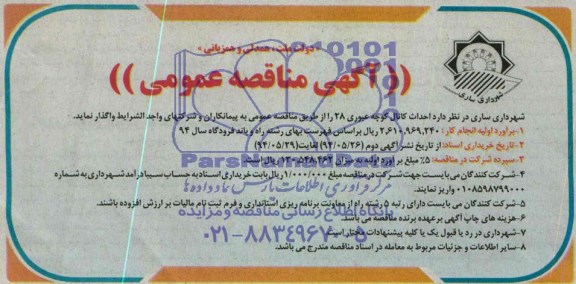 « دولت ملت ، همدلی و همزبانی »
(( آگهی مناقصه عمومی ))
شهرداری ساری
شهرداری ساری در نظر دارد احداث کانال کوچه عبوری ۲۸ را از طریق مناقصه عمومی به پیمانکاران و شرکتهای واجد الشرایط واگذار نماید.
۱-برآورد اولیه انجام کار : ۲,۶۱۰,۹۶۹,۲۴۰ ریال براساس فهرست بهای رشته راه و باند فرودگاه سال ۹۴
۲-تاریخ خریداری اسناد: از تاریخ نشر آگهی دوم (۹۴/۰۵/۲۶) لغایت (۹۴/۰۵/۲۹)
۳-سپرده شرکت در مناقصه: ۵٪ مبلغ برآورد اولیه به میزان ۱۳۰,۵۴۸,۴۶۲ ریال است.
۴-شرکت کنندگان می بایست جهت شرکت در مناقصه مبلغ ۱/۰۰۰/۰۰۰ ریال بابت خریداری اسناد به حساب سیبا درآمد شهرداری به شماره
۰۱۰۸۵۹۸۷۹۹۰۰۰ واریز نمایند.
۵-شرکت کنندگان می بایست دارای رتبه ۵ رشته راه از معاونت برنامه ریزی استانداری و فرم ثبت نام مالیات بر ارزش افزوده باشند.
۶-هزینه های چاپ آگهی برعهده برنده مناقصه می باشد.
۷-شهرداری در رد یا قبول یک یا کلیه پیشنهادات مختار است.
۸-سایر اطلاعات و جزئیات مربوط به معامله در اسناد مناقصه مندرج می باشد.
مرکز فرآوری اطلاعات پارس ماد داده ها
پایگاه اطلاع رسانی مناقصه و مزایده
۰۲۱-۸۸۳۴۹۶۷۰-۵